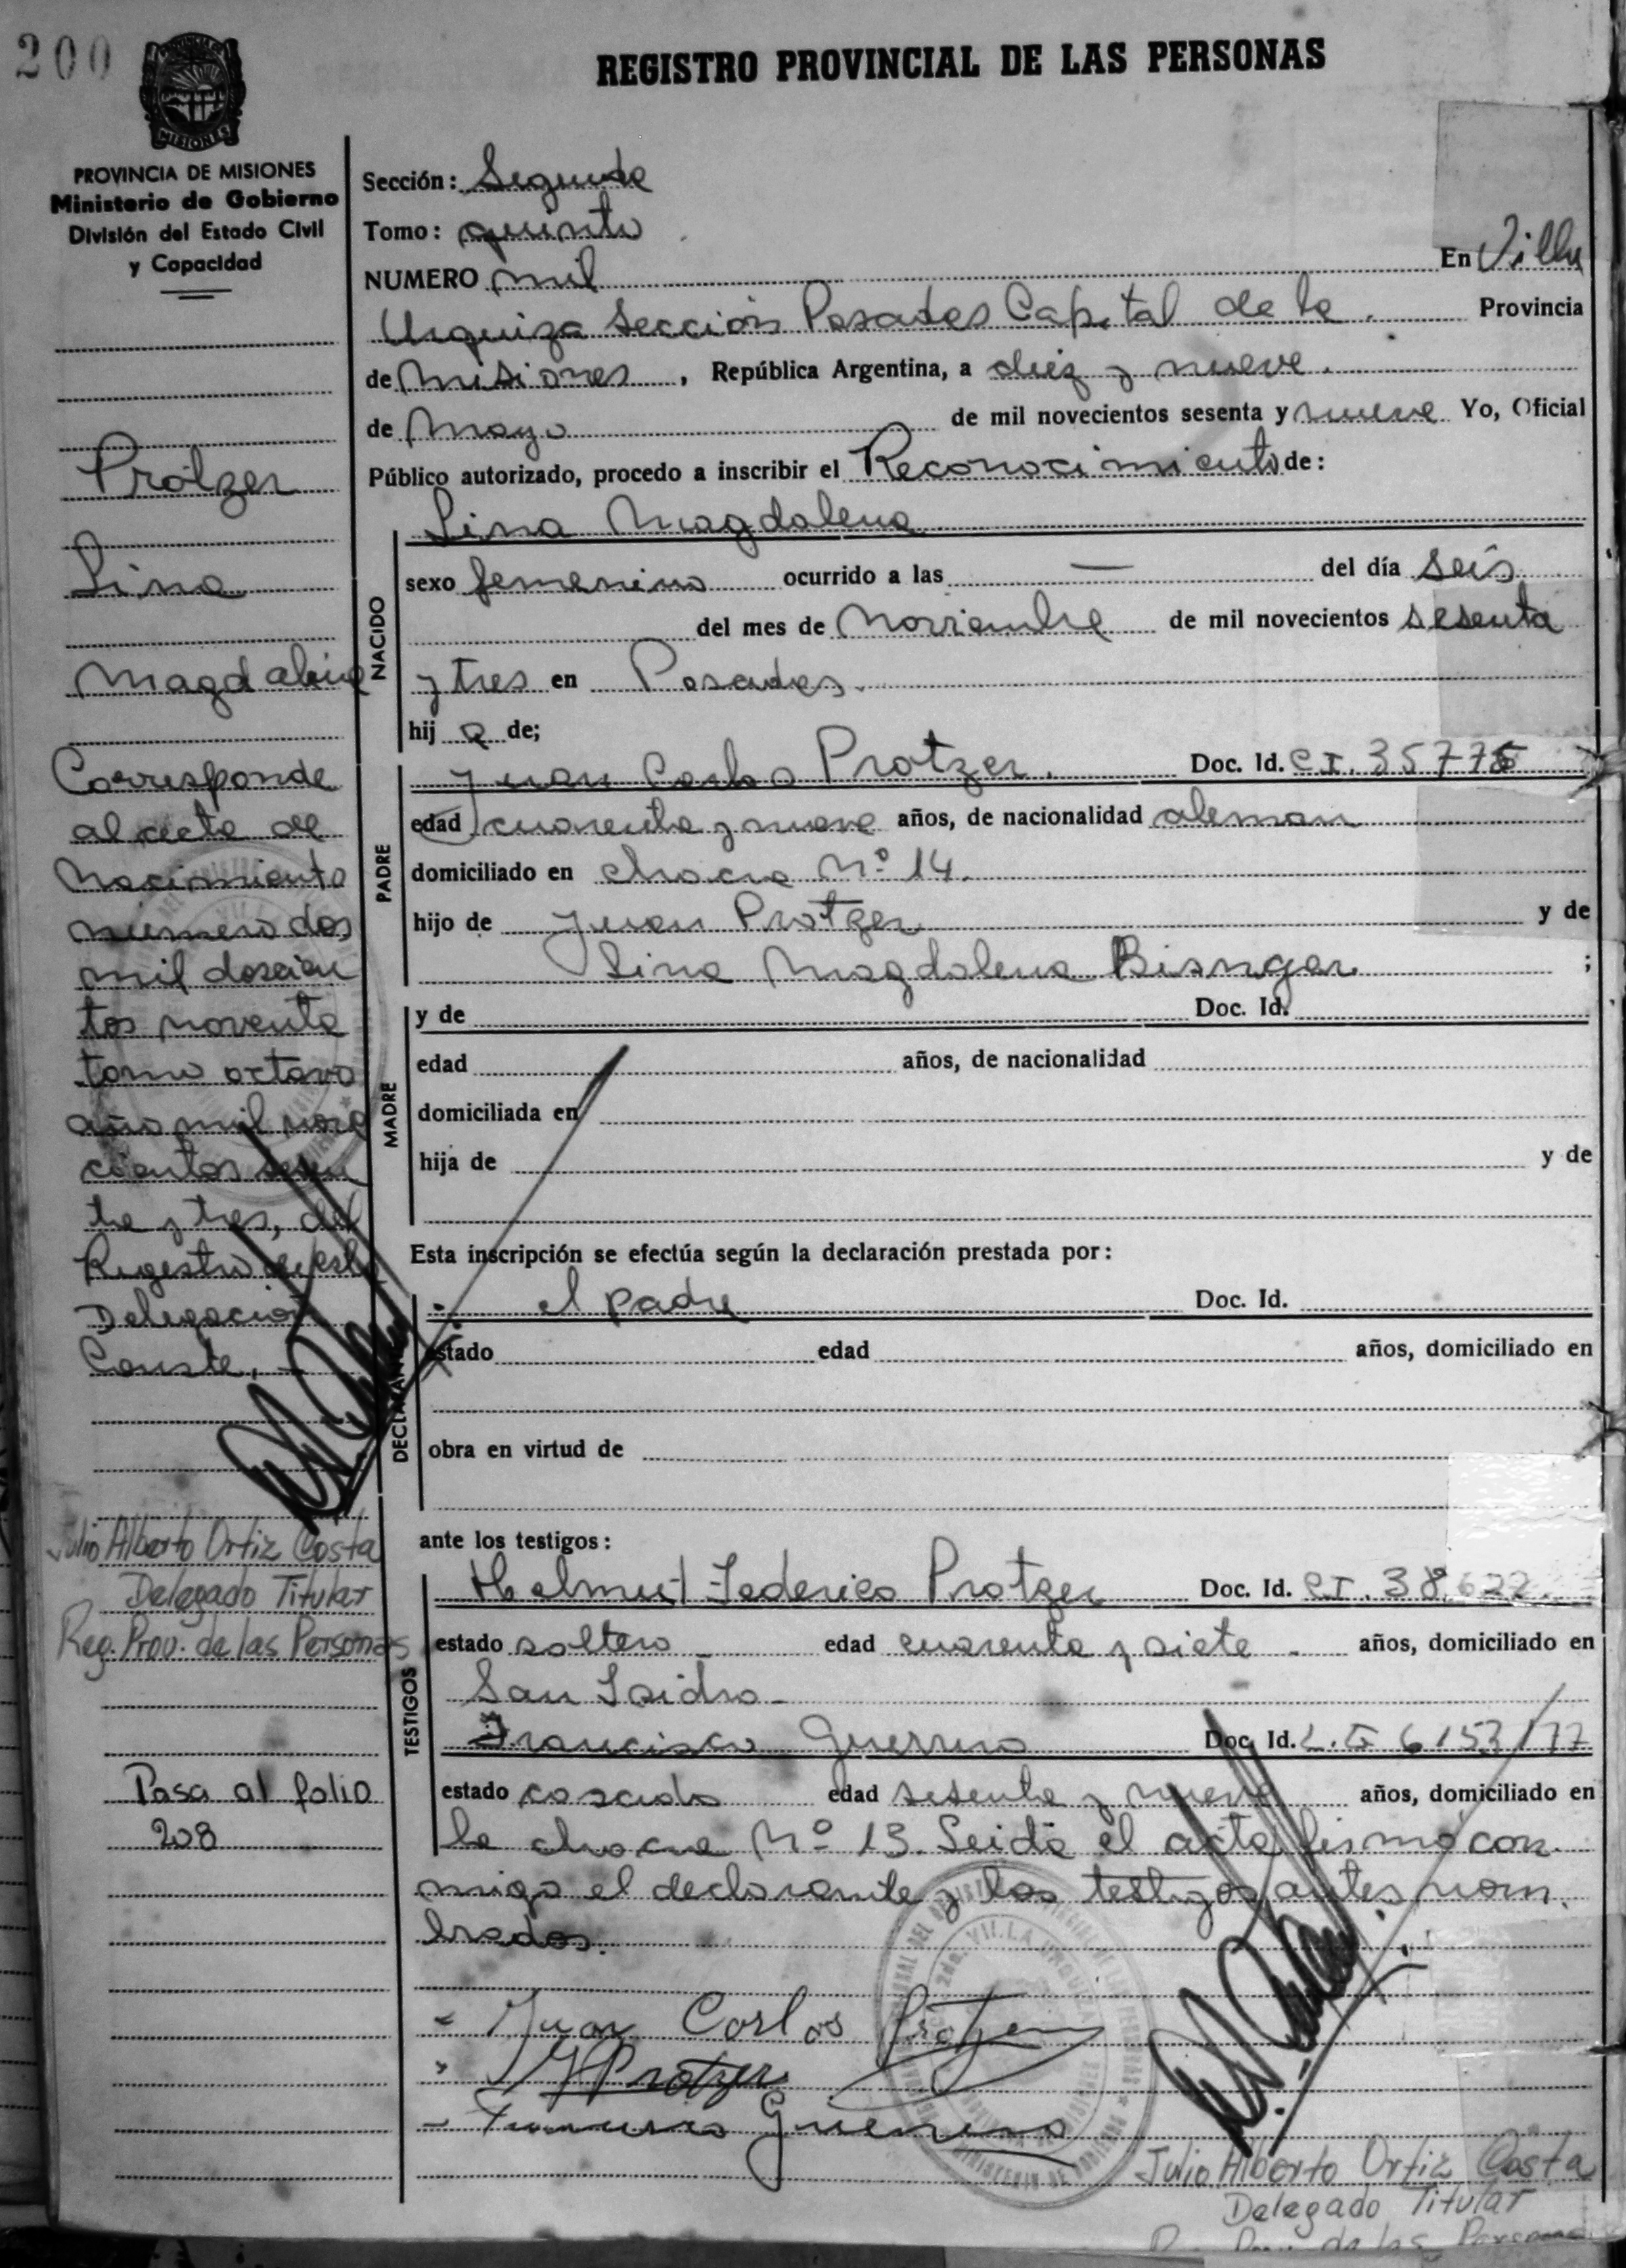 200
MISIONES
REGISTRO PROVINCIAL DE LAS PERSONAS
PROVINCIA DE MISIONES
Ministerio de Gobierno
División del Estado Civil
y Capacidad
Protzer
Lina
Magdalena
Corresponde
al acta de
Nacimiento
número dos
mil doscien
tos noventa
tomo octavo
año mil nove
cientos sesen
ta y tres, del
Registro de esta
Delegación
Conste.
Julio Alberto Ortiz Costa
Delegado Titular
Reg. Prov. de las Personas
Pasa al folio
208
Sección: Segunda
Tomo: quinto
NUMERO mil En Villa
Urquiza Sección Posadas Capital de la Provincia
de Misiones, República Argentina, a diez y nueve.
de Mayo de mil novecientos sesenta y nueve Yo, Oficial
Público autorizado, procedo a inscribir el Reconocimiento de:
Lina Magdalena
NACIDO
sexo femenino ocurrido a las — del día seis
del mes de Noviembre de mil novecientos sesenta
y tres en Posadas.
hij a de;
PADRE
Juan Carlos Protzer. Doc. Id. CI. 35775
edad cuarenta y nueve años, de nacionalidad aleman
domiciliado en chacra Nº 14.
hijo de Juan Protzer y de
Lina Magdalena Bisnger ;
MADRE
y de Doc. Id.
edad años, de nacionalidad
domiciliada en
hija de y de
Esta inscripción se efectúa según la declaración prestada por:
DECLARANTE
el padre Doc. Id.
estado edad años, domiciliado en
obra en virtud de
ante los testigos:
TESTIGOS
Helmut Federico Protzer Doc. Id. CI. 38.622
estado soltero edad cuarenta y siete años, domiciliado en
San Isidro
Francisco Guerrero Doc. Id.
estado casado edad sesenta y nueve años, domiciliado en
la chacra Nº 13. Leida el acta firmó con
migo el declarante y los testigos antes nom
brados.
Juan Carlos Protzer
H Protzer
Francisco Guerrero
Julio Alberto Ortiz Costa
Delegado Titular
Reg. Prov. de las Personas